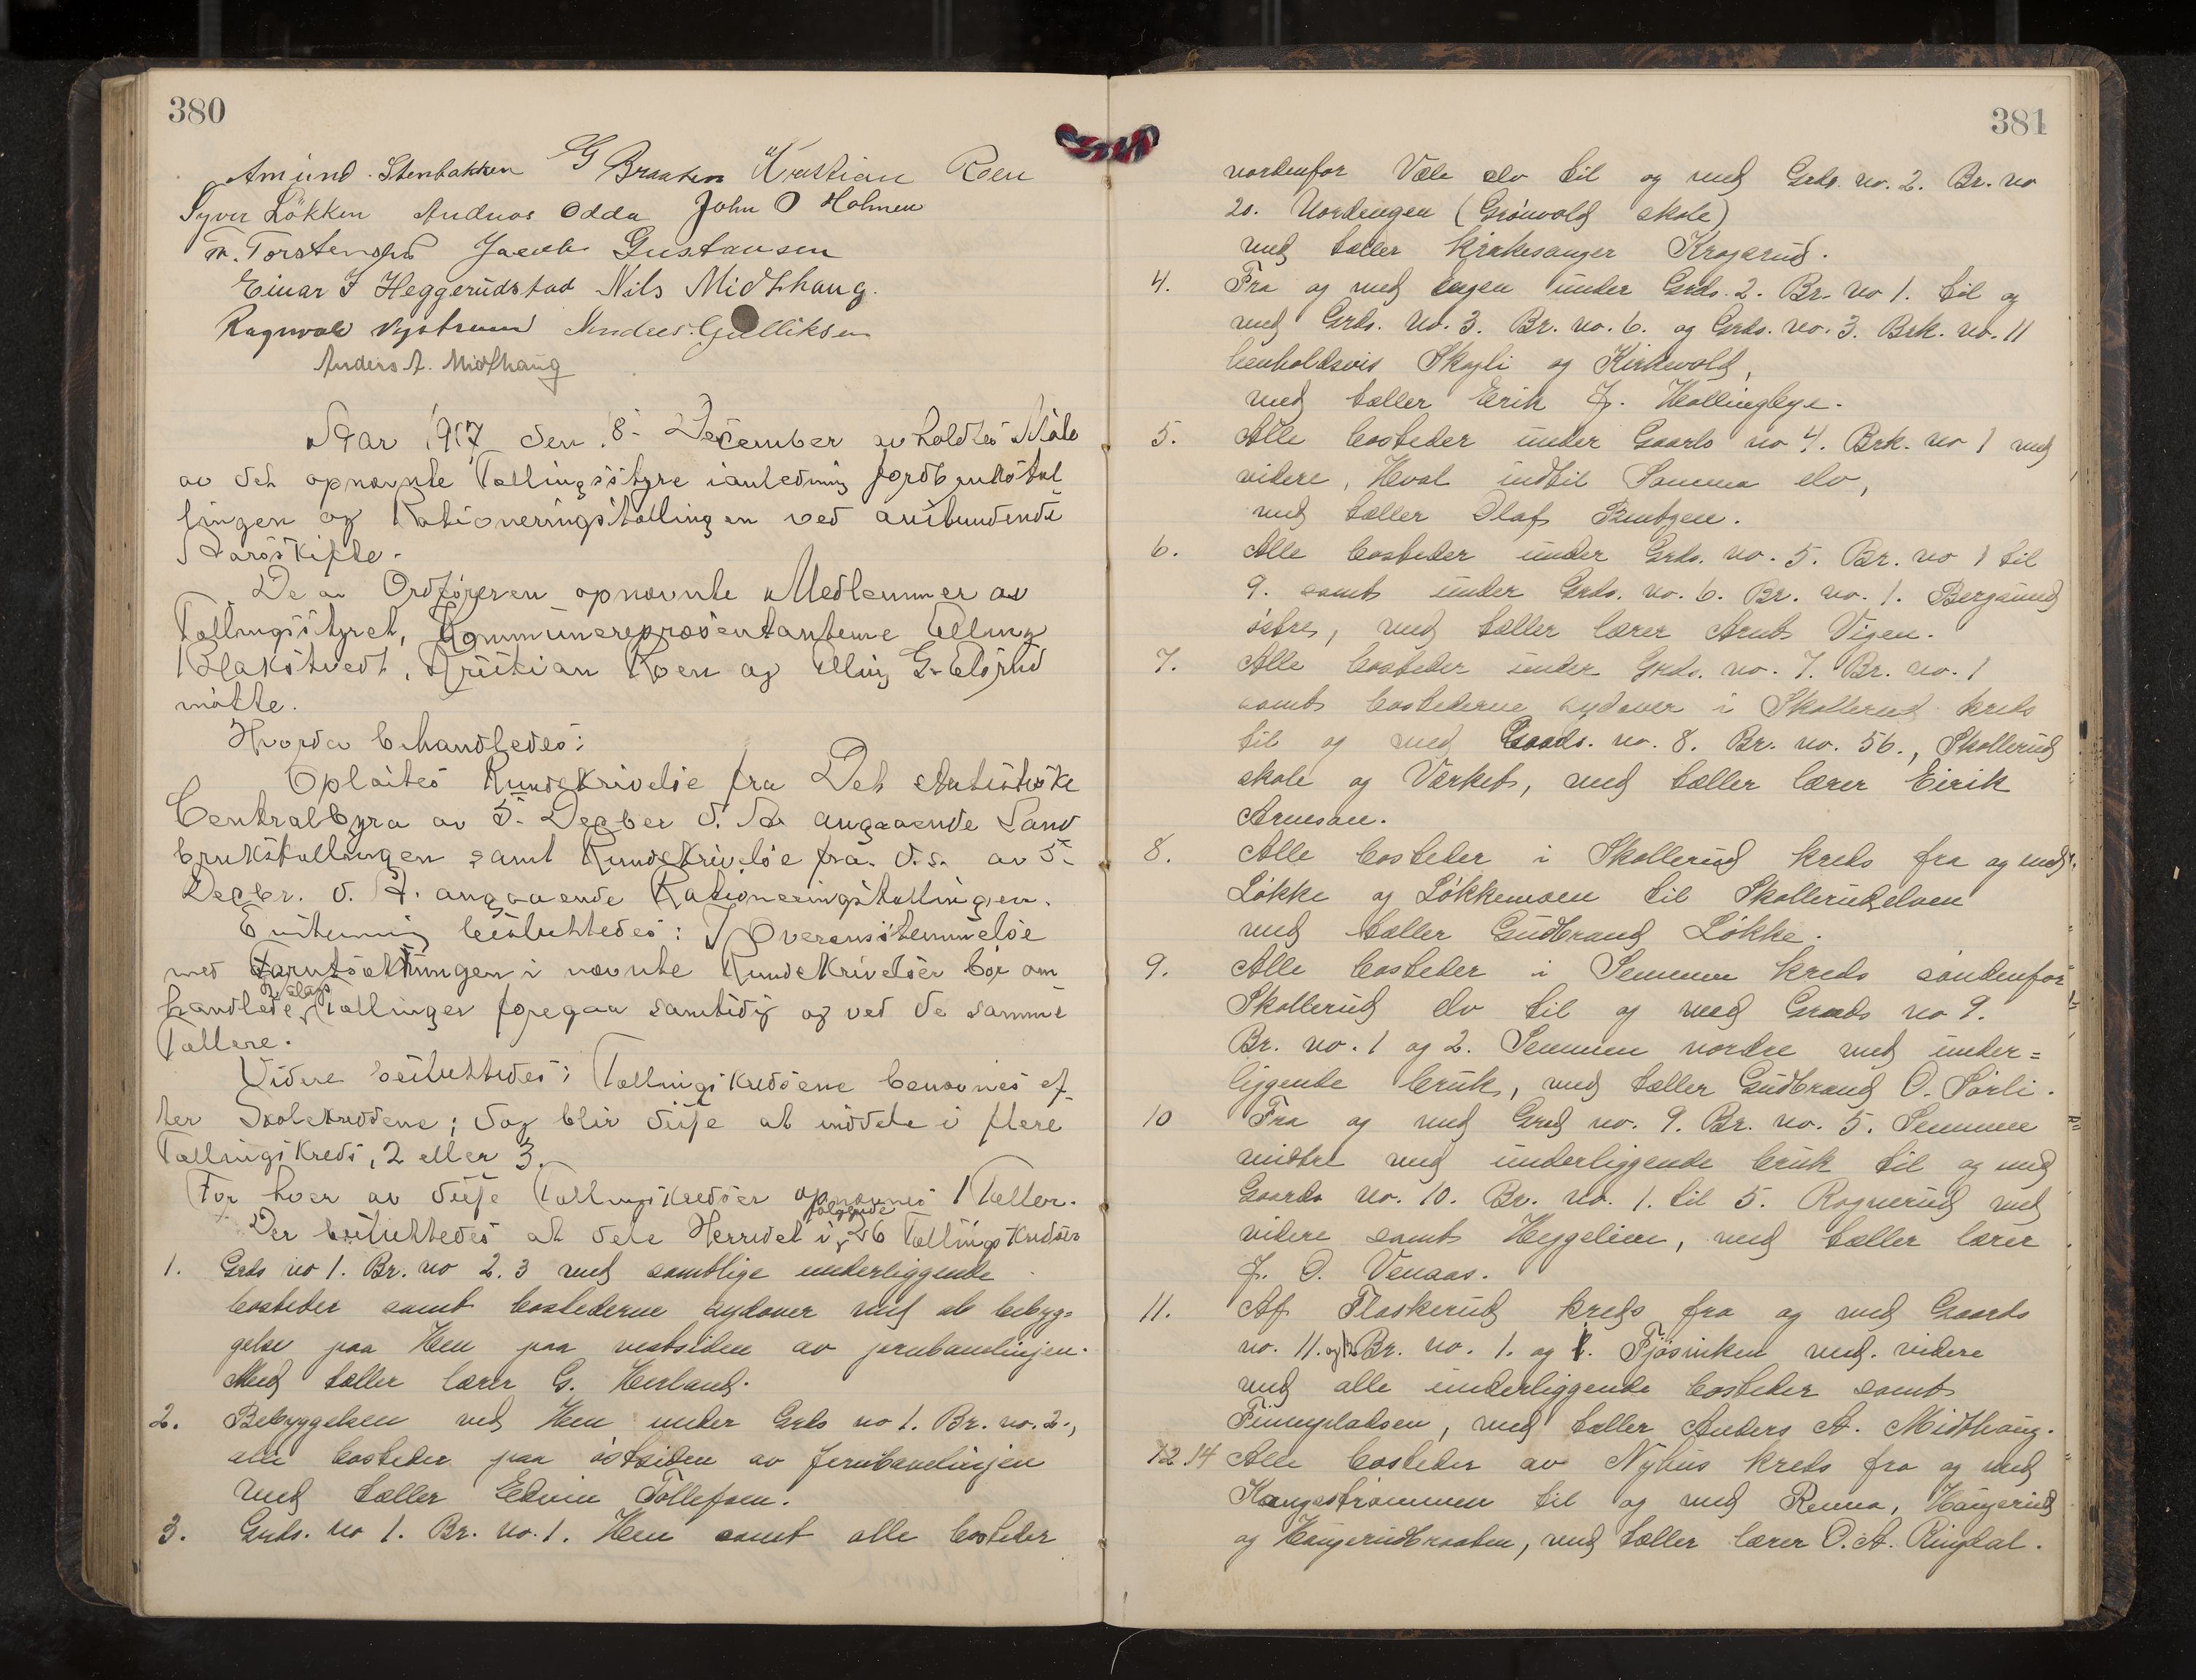 380
Amund Stenbakken G Braaten Kristian Roen
Syver Løkken Andreas Odda John O Holmen
Torstensen Jacob Gustavsen
Einar J Heggerudstad Nils Midthaug.
Ragnvald Nystrøm Anders Gulliksen
Anders A. Midthaug
Aar 1917 den 8- December avholdtes Møte
av det opnævnte Tællingsstyre ianledning Jordbrukstæl
lingen og Rationeringstællingen ved anstundende
Aarsskifte.
De av Ordføreren opnævnte Medlemmer av
Tællingsstyret, Kommunerepræsentanterne Elling
Blakstvedt, Kristian Roen og Elling G. Elsrud
møtte.
Hvorda behandledes:
Oplæstes Rundskrivelse fra Det Statistiske
Centralbyra av 5- Decber d. Aa angaaende Land
brukstællingen samt Rundskrivelse fra d.s. av 5-
Decbr. d. A. angaaende Rationeringstællingen.
Enstemmig besluttedes: I Overensstemmelse
med Forutsætningen i nævnte Rundskrivelser bør om
handlede 2 slags Tællinger foregaa samtidig og ved de samme
Tællere.
Videre besluttedes: Tællingskredsene benævnes ef-
ter Skolekredsene; dog blir disse at inddele i flere
Tællingskreds, 2 eller 3.
For hver av disse Tællingskredser opnævnes 1 Tæller.
Der besluttedes at dele Herredet i følgende 26 Tællingskredser
1. Grds no 1. Br. no 2. 3 med samtlige underliggende
bosteder samt bostederne sydover med al bebyg=
gelse paa Hen paa vestsiden av jernbanelinjen.
Med tæller lærer G. Herland.
2. Bebyggelsen ved Hen under Grds no 1. Br. no. 2.,
alle bosteder paa østsiden av Jernbanelinjen
med tæller Edvin Tollefsen.
3. Grds. no 1. Br. no. 1. Hen samt alle bosteder
381
nordenfor Væle elv til og med Grds. no. 2. Br. no
20. Nordengen (Grønvold skole)
med tæller kirkesanger Kragerud.
4. Fra og med Engen under Grds. 2. Br. no 1. til og
med Grds. no. 3. Br. no. 6. og Grds. no. 3. Brk. no. 11
henholdsvis Skogli og Kirkevold,
med tæller Erik J. Hallingbye.
5. Alle bosteder under Gaards no 4. Brk. no 1 med
videre, Hval indtil Somma elv,
med tæller Olaf
6. Alle bosteder under Grds. no. 5. Br. no 1 til
9. samt under Grds. no. 6. Br. no. 1. Bergsund
østre, med tæller lærer Arnt Vigen.
7. Alle bosteder under Grds. no. 7. Br. no. 1
samt bostederne sydover i Skollerud kreds
til og med Gaards. no. 8. Br. no. 56., Skollerud
skole og Værket, med tæller lærer Eirik
Arnesen.
8. Alle bosteder i Skollerud kreds fra og med
Løkke og Løkkemoen til Skollerudelven
med tæller Gudbrand Løkke.
9. Alle bosteder i Semmen kreds søndenfor
Skollerud elv til og med Graads no 9.
Br. no. 1 og 2. Semmen nordre med under=
liggende bruk, med tæller Gudbrand O. Sørli.
10 Fra og med Grd no. 9. Br. no. 5. Semmen
midtre med underliggende bruk til og med
Gaards no. 10. Br. no. 1. til 5. Rognerud med
videre samt Heggelien, med tæller lærer
J. O. Venaas.
11. Af Flaskerud kreds fra og med Gaards
no. 11. og 12 Br. no. 1. og 1. Fjøsviken med. videre
med alle underliggende bosteder samt
Finnepladsen, med tæller Anders A. Midthaug.
12 14 Alle bosteder av Nyhus kreds fra og med
Kongestrømmen til og med Renna, Haugerud
og Haugerudbraaten, med tæller lærer O. A. Ringdal.